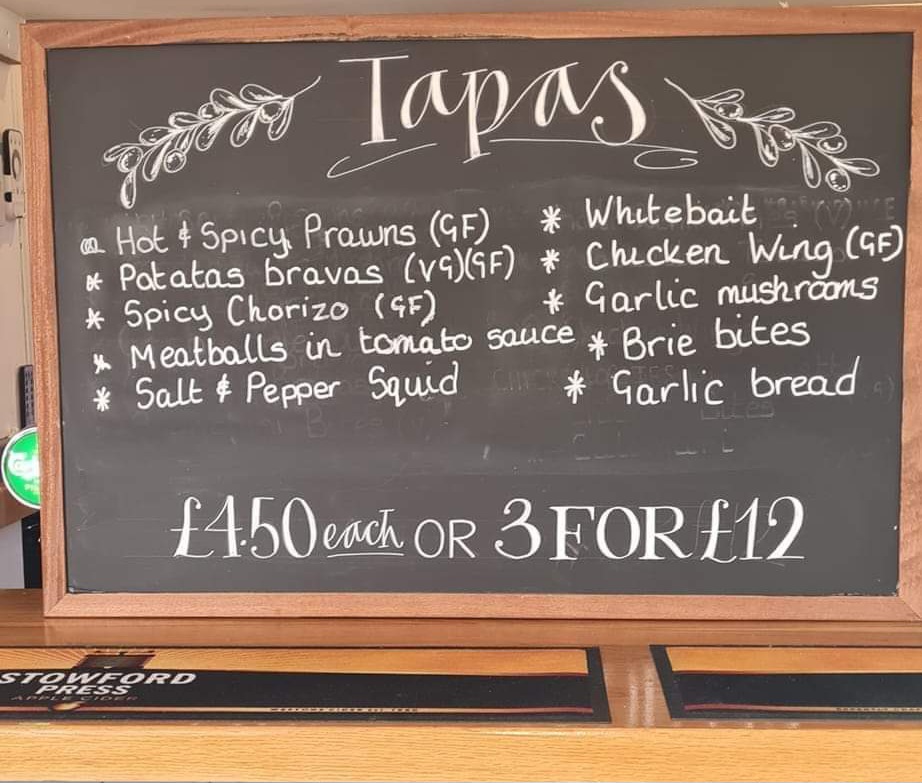 Tapas
Hot & Spicy Prawns (GF)
* Patatas bravas (VG)(GF)
* Spicy Chorizo (GF)
* Meatballs in tomato sauce
* Salt & Pepper Squid
* Whitebait
* Chicken Wing (GF)
* Garlic mushrooms
* Brie bites
* Garlic bread
£4.50 each OR 3 FOR £12
STOWFORD
PRESS
APPLE CIDER